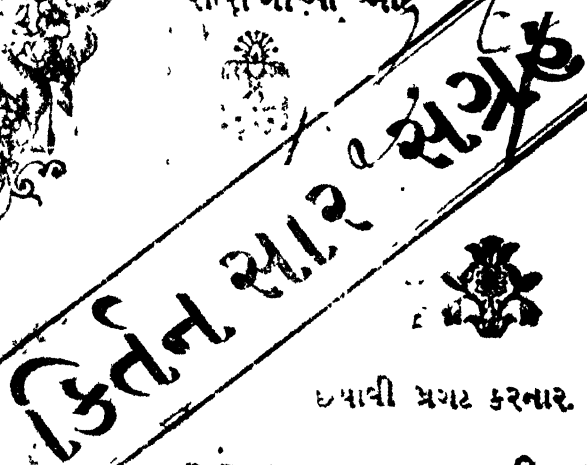 કિર્તન સાર સંગ્રહ
છપાવી પ્રગટ કરનાર.